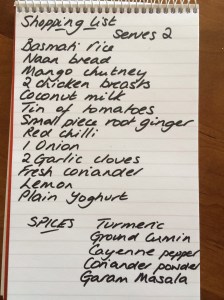 Shopping List
Serves 2
Basmati rice
Naan bread
Mango chutney
2 chicken breasts
Coconut milk
Tin of tomatoes
Small piece root ginger
Red chilli
1 Onion
2 Garlic cloves
Fresh coriander
Lemon
Plain Yoghurt
SPICES Turmeric
Ground Cumin
Cayenne pepper
Coriander powder
Garam Masala